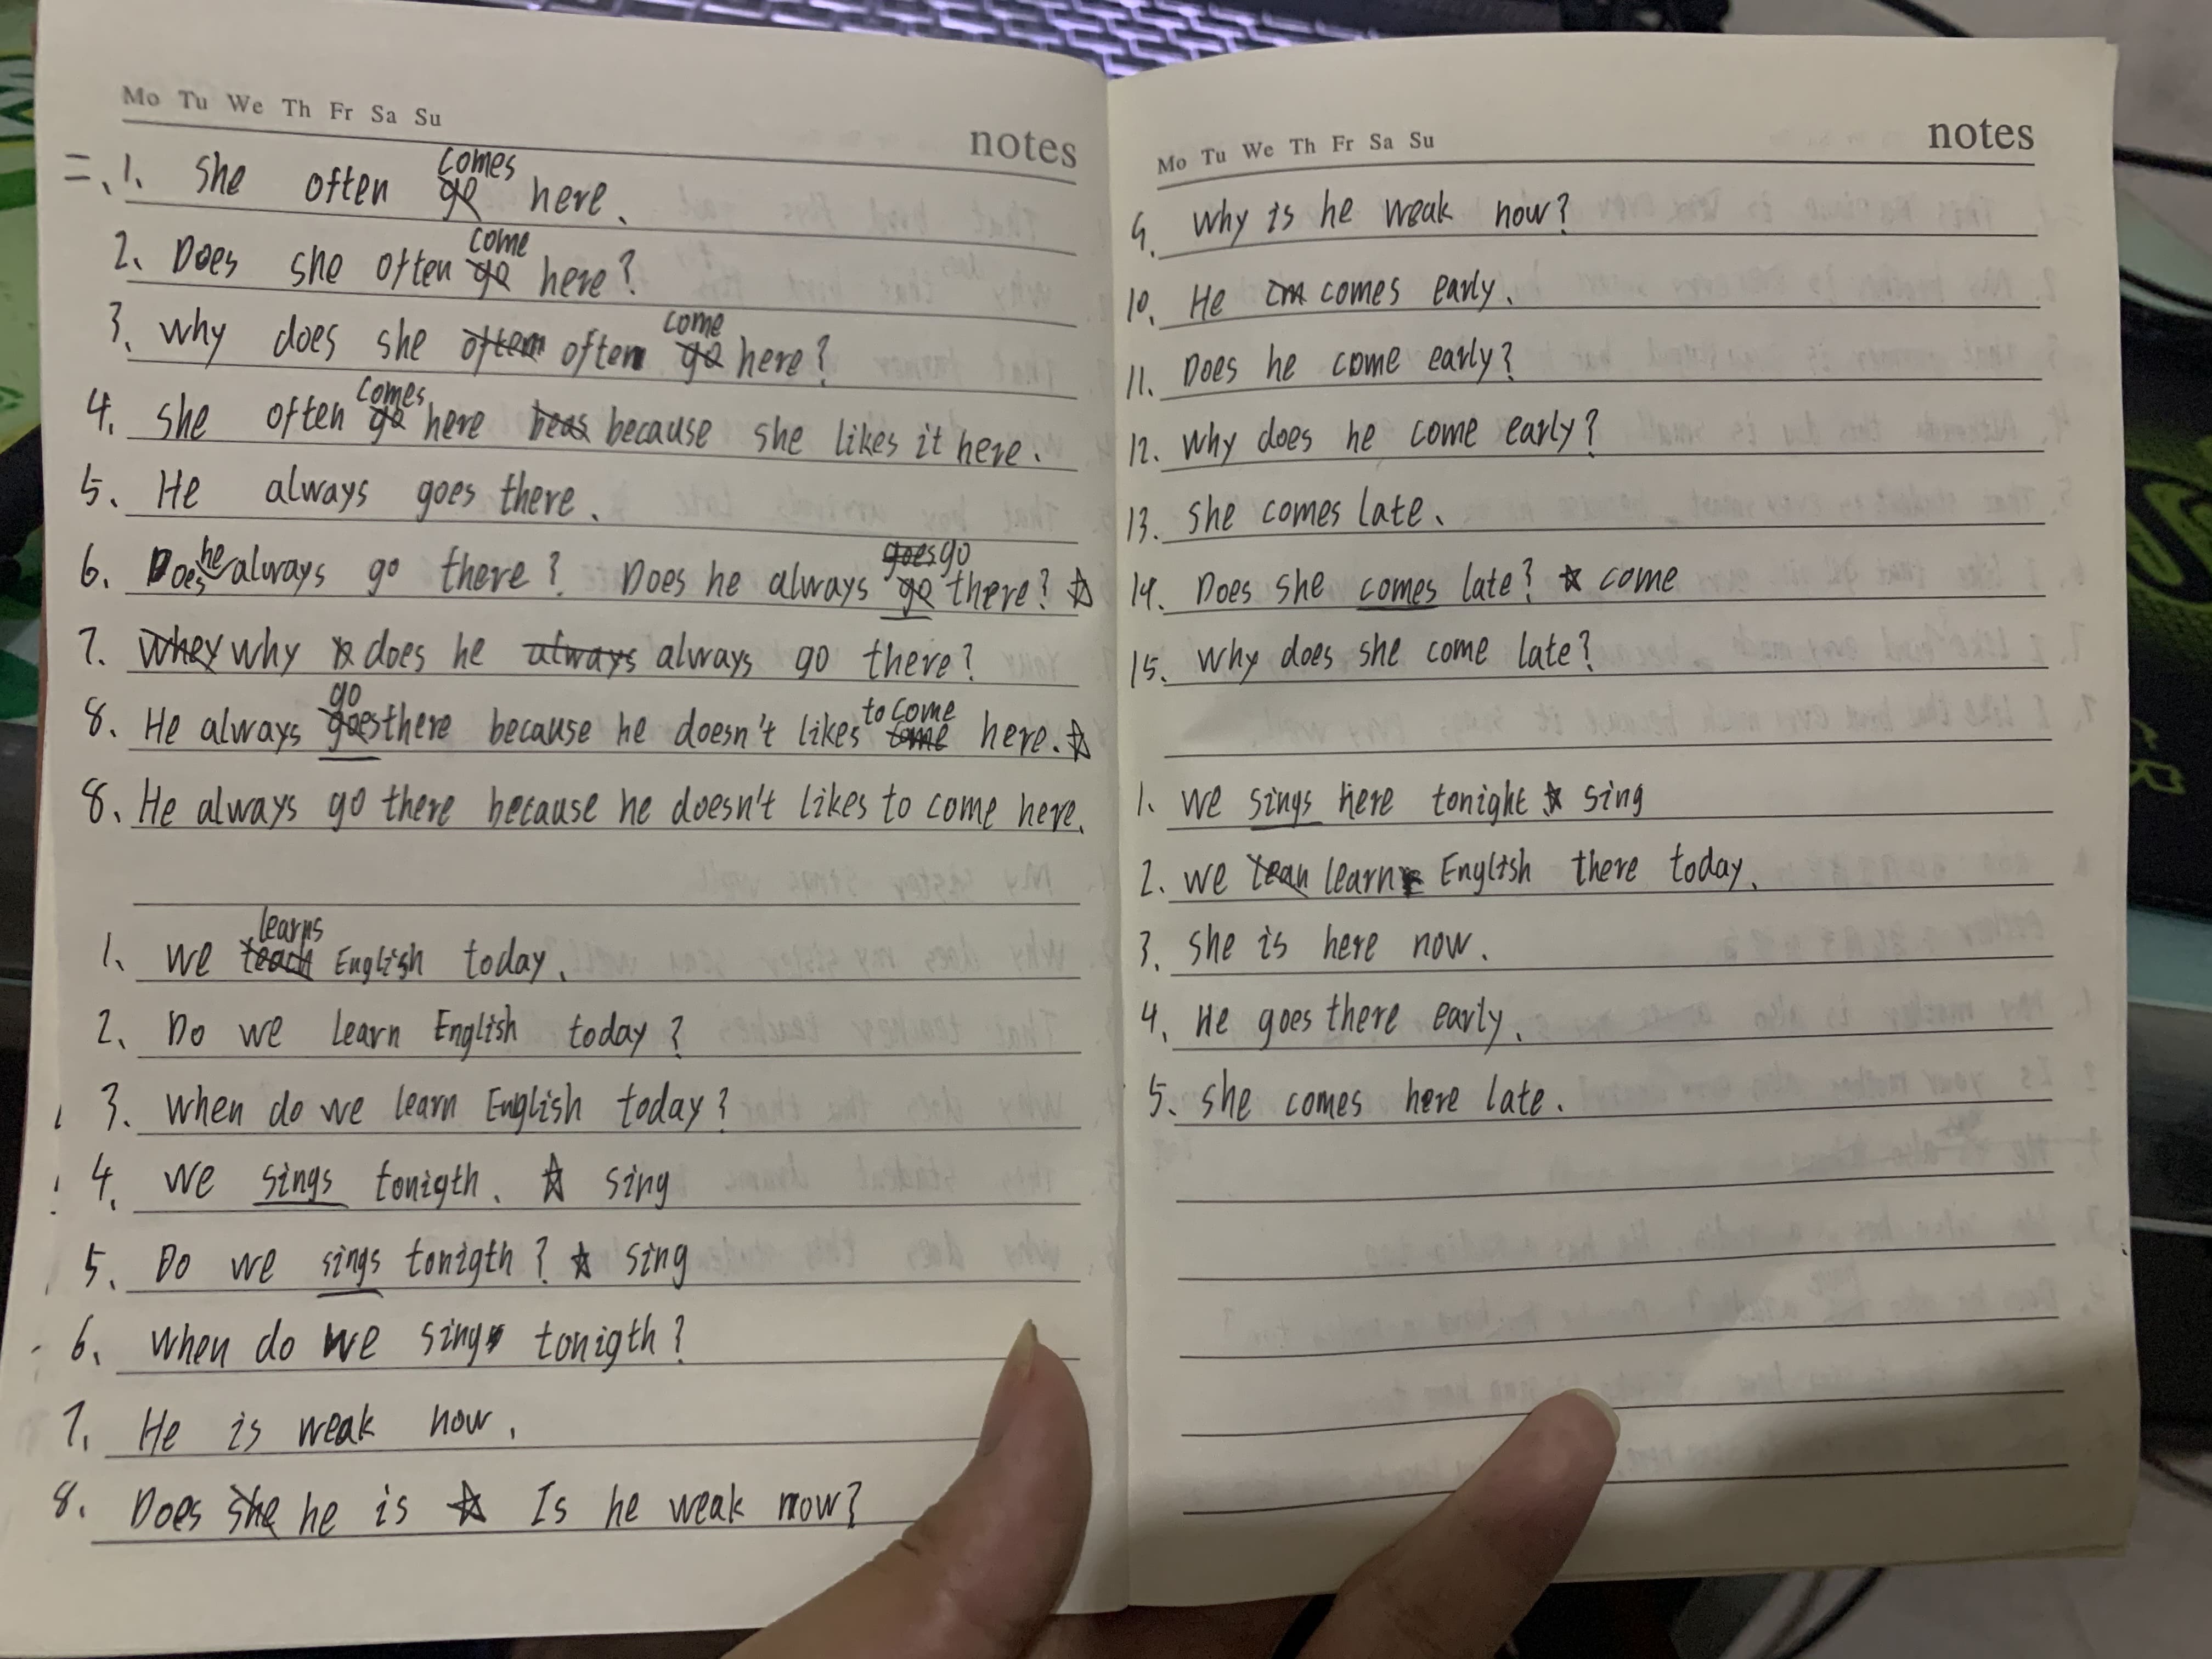 Mo Tu We Th Fr Sa Su
notes
二、1. she often comes here.
2. Does she often come here?
3. why does she often come here?
4. she often comes here because she likes it here.
5. He always goes there.
6. Does he always go there? Does he always go there? ☆
7. why does he always go there?
8. He always go there because he doesn't likes to come here. ☆
8. He always go there because he doesn't likes to come here.
1. we learns English today.
2. Do we learn English today?
3. when do we learn English today?
4. we sings tonigth. ☆ sing
5. Do we sings tonigth? ☆ sing
6. when do we sing tonigth?
7. He is weak now.
8. Does he is ☆ Is he weak now?
Mo Tu We Th Fr Sa Su
notes
9. why is he weak now?
10. He comes early.
11. Does he come early?
12. why does he come early?
13. she comes late.
14. Does she comes late? ☆ come
15. why does she come late?
1. we sings here tonight ☆ sing
2. we learn English there today.
3. she is here now.
4. He goes there early.
5. she comes here late.